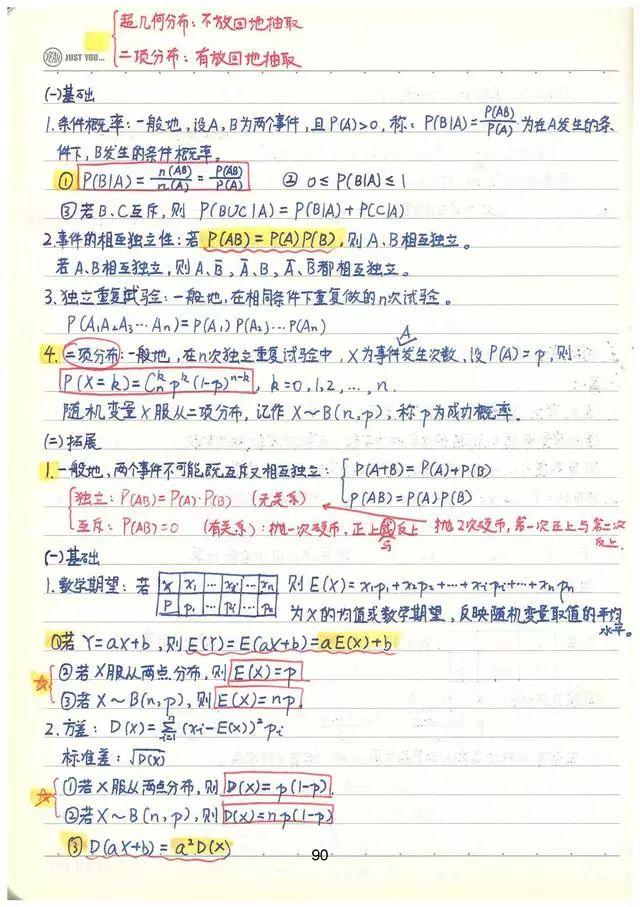 超几何分布：不放回地抽取
二项分布：有放回地抽取
YEAH JUST YOU...
(一)基础
1.条件概率：一般地，设A，B为两个事件，且P(A)>0，称：P(B|A)=P(AB)/P(A) 为在A发生的条
件下，B发生的条件概率。
① P(B|A)=n(AB)/n(A)=P(AB)/P(A) ② 0≤P(B|A)≤1
③若B、C互斥，则 P(B∪C|A)=P(B|A)+P(C|A)
2.事件的相互独立性：若 P(AB)=P(A)P(B)，则A、B相互独立。
若A、B相互独立，则A、B̅，A̅、B，A̅、B̅都相互独立。
3.独立重复试验：一般地，在相同条件下重复做的n次试验。
P(A₁A₂A₃⋯An)=P(A₁)P(A₂)⋯P(An)
A
4.二项分布：一般地，在n次独立重复试验中，X为事件发生次数，设P(A)=p，则
P(X=k)=Cₙᵏpᵏ(1-p)ⁿ⁻ᵏ，k=0,1,2,…,n.
随机变量X服从二项分布，记作X~B(n,p)，称p为成功概率。
(二)拓展
1.一般地，两个事件不可能既互斥又相互独立：P(A+B)=P(A)+P(B)
P(AB)=P(A)P(B)
独立：P(AB)=P(A)·P(B) (无关系)
互斥：P(AB)=0 (有关系)：抛一次硬币，正上或反上 抛2次硬币，第一次正上与第二次
与 反上.
(一)基础
1.数学期望：若 X x₁ ⋯ xᵢ ⋯ xn 则E(X)=x₁p₁+x₂p₂+⋯+xᵢpᵢ+⋯+xnpn
P p₁ ⋯ pᵢ ⋯ pn 为X的均值或数学期望，反映随机变量取值的平均
水平。
①若Y=aX+b，则E(Y)=E(aX+b)=aE(X)+b
②若X服从两点分布，则E(X)=p
③若X~B(n,p)，则E(X)=np.
2.方差：D(X)=∑ⁿᵢ₌₁(xᵢ-E(X))²pᵢ
标准差：√D(X)
①若X服从两点分布，则D(X)=p(1-p).
②若X~B(n,p)，则D(X)=np(1-p)
③ D(aX+b)=a²D(X)
90